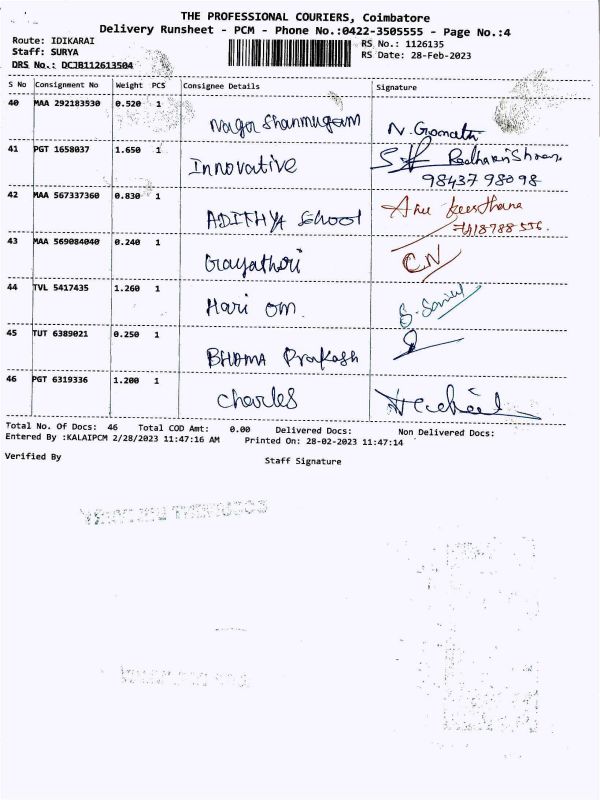 THE PROFESSIONAL COURIERS, Coimbatore
Delivery Runsheet - PCM - Phone No.:0422-3505555 - Page No.:4
Route: IDIKARAI
RS No.: 1126135
Staff: SURYA
RS Date: 28-Feb-2023
DRS No.: DCJB112613504
S No Consignment No Weight PCS Consignee Details Signature
40 MAA 292183530 0.520 1 Naga Shanmugam
41 PGT 1658037 1.650 1 Innovative
98437 98098
42 MAA 567337360 0.830 1 ADITHYA School
43 MAA 569084040 0.240 1 Gayathori CN
44 TVL 5417435 1.260 1 Hari om.
45 TUT 6389021 0.250 1 BHAMA Prakash
46 PGT 6319336 1.200 1 Charles
Total No. Of Docs: 46 Total COD Amt: 0.00 Delivered Docs: Non Delivered Docs:
Entered By :KALAIPCM 2/28/2023 11:47:16 AM Printed On: 28-02-2023 11:47:14
Verified By Staff Signature